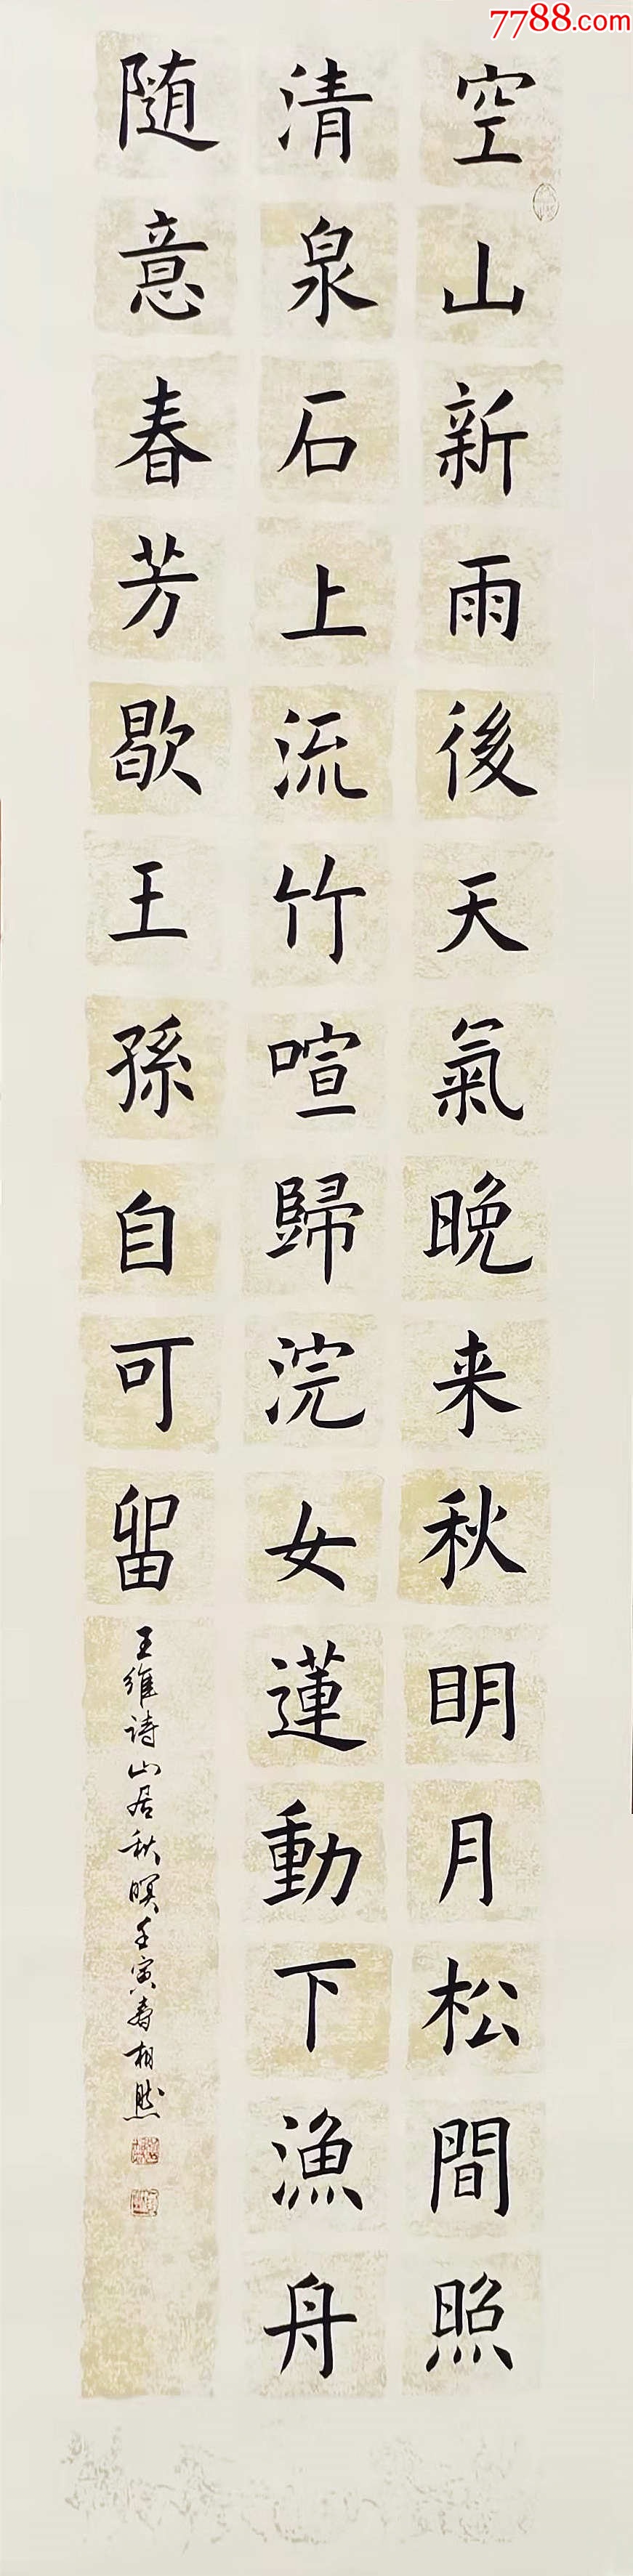 7788.com
空山新雨後天氣晚来秋眀月松間照
清泉石上流竹喧歸浣女蓮動下漁舟
随意春芳歇王孫自可畱
王維诗山居秋暝壬寅春相